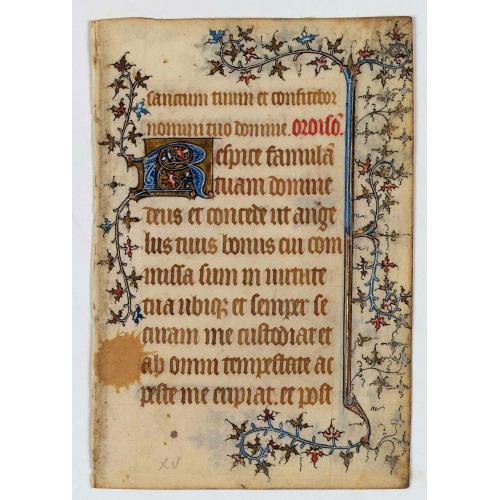 sanctum tuum et confitebor
nomini tuo domine. Oroiso͂.
Respice famula͂
tuam domine
deus et concede ut ange
lus tuus bonus cui com
missa sum in uirtute
tua ubiq; et semper se
curam me custodiat et
ab omni tempestate ac
peste me eripiat. et post
XV